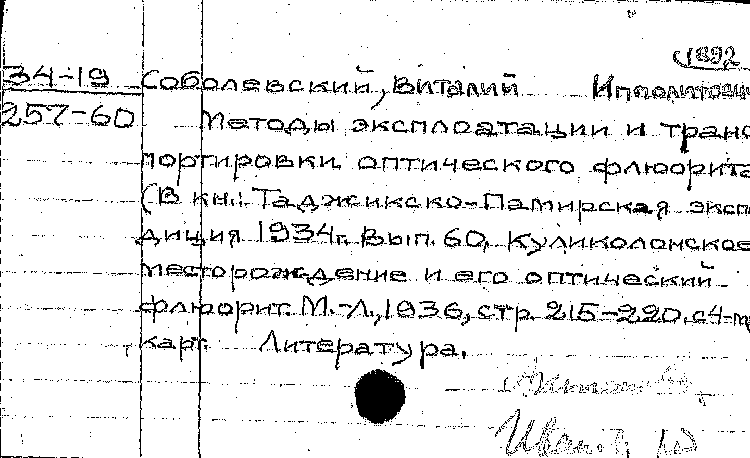 1892
34-19 Соболевский, Виталий Ипполитович
257-60 Методы эксплоатации и транс
портировки оптического флюорита
(В кн.: Таджикско-Памирская экспе
диция 1934г. Вып. 60, Куликолонское
месторождение и его оптический
флюорит. М.-Л., 1936, стр. 215-220. с 4-мя
карт. Литература.